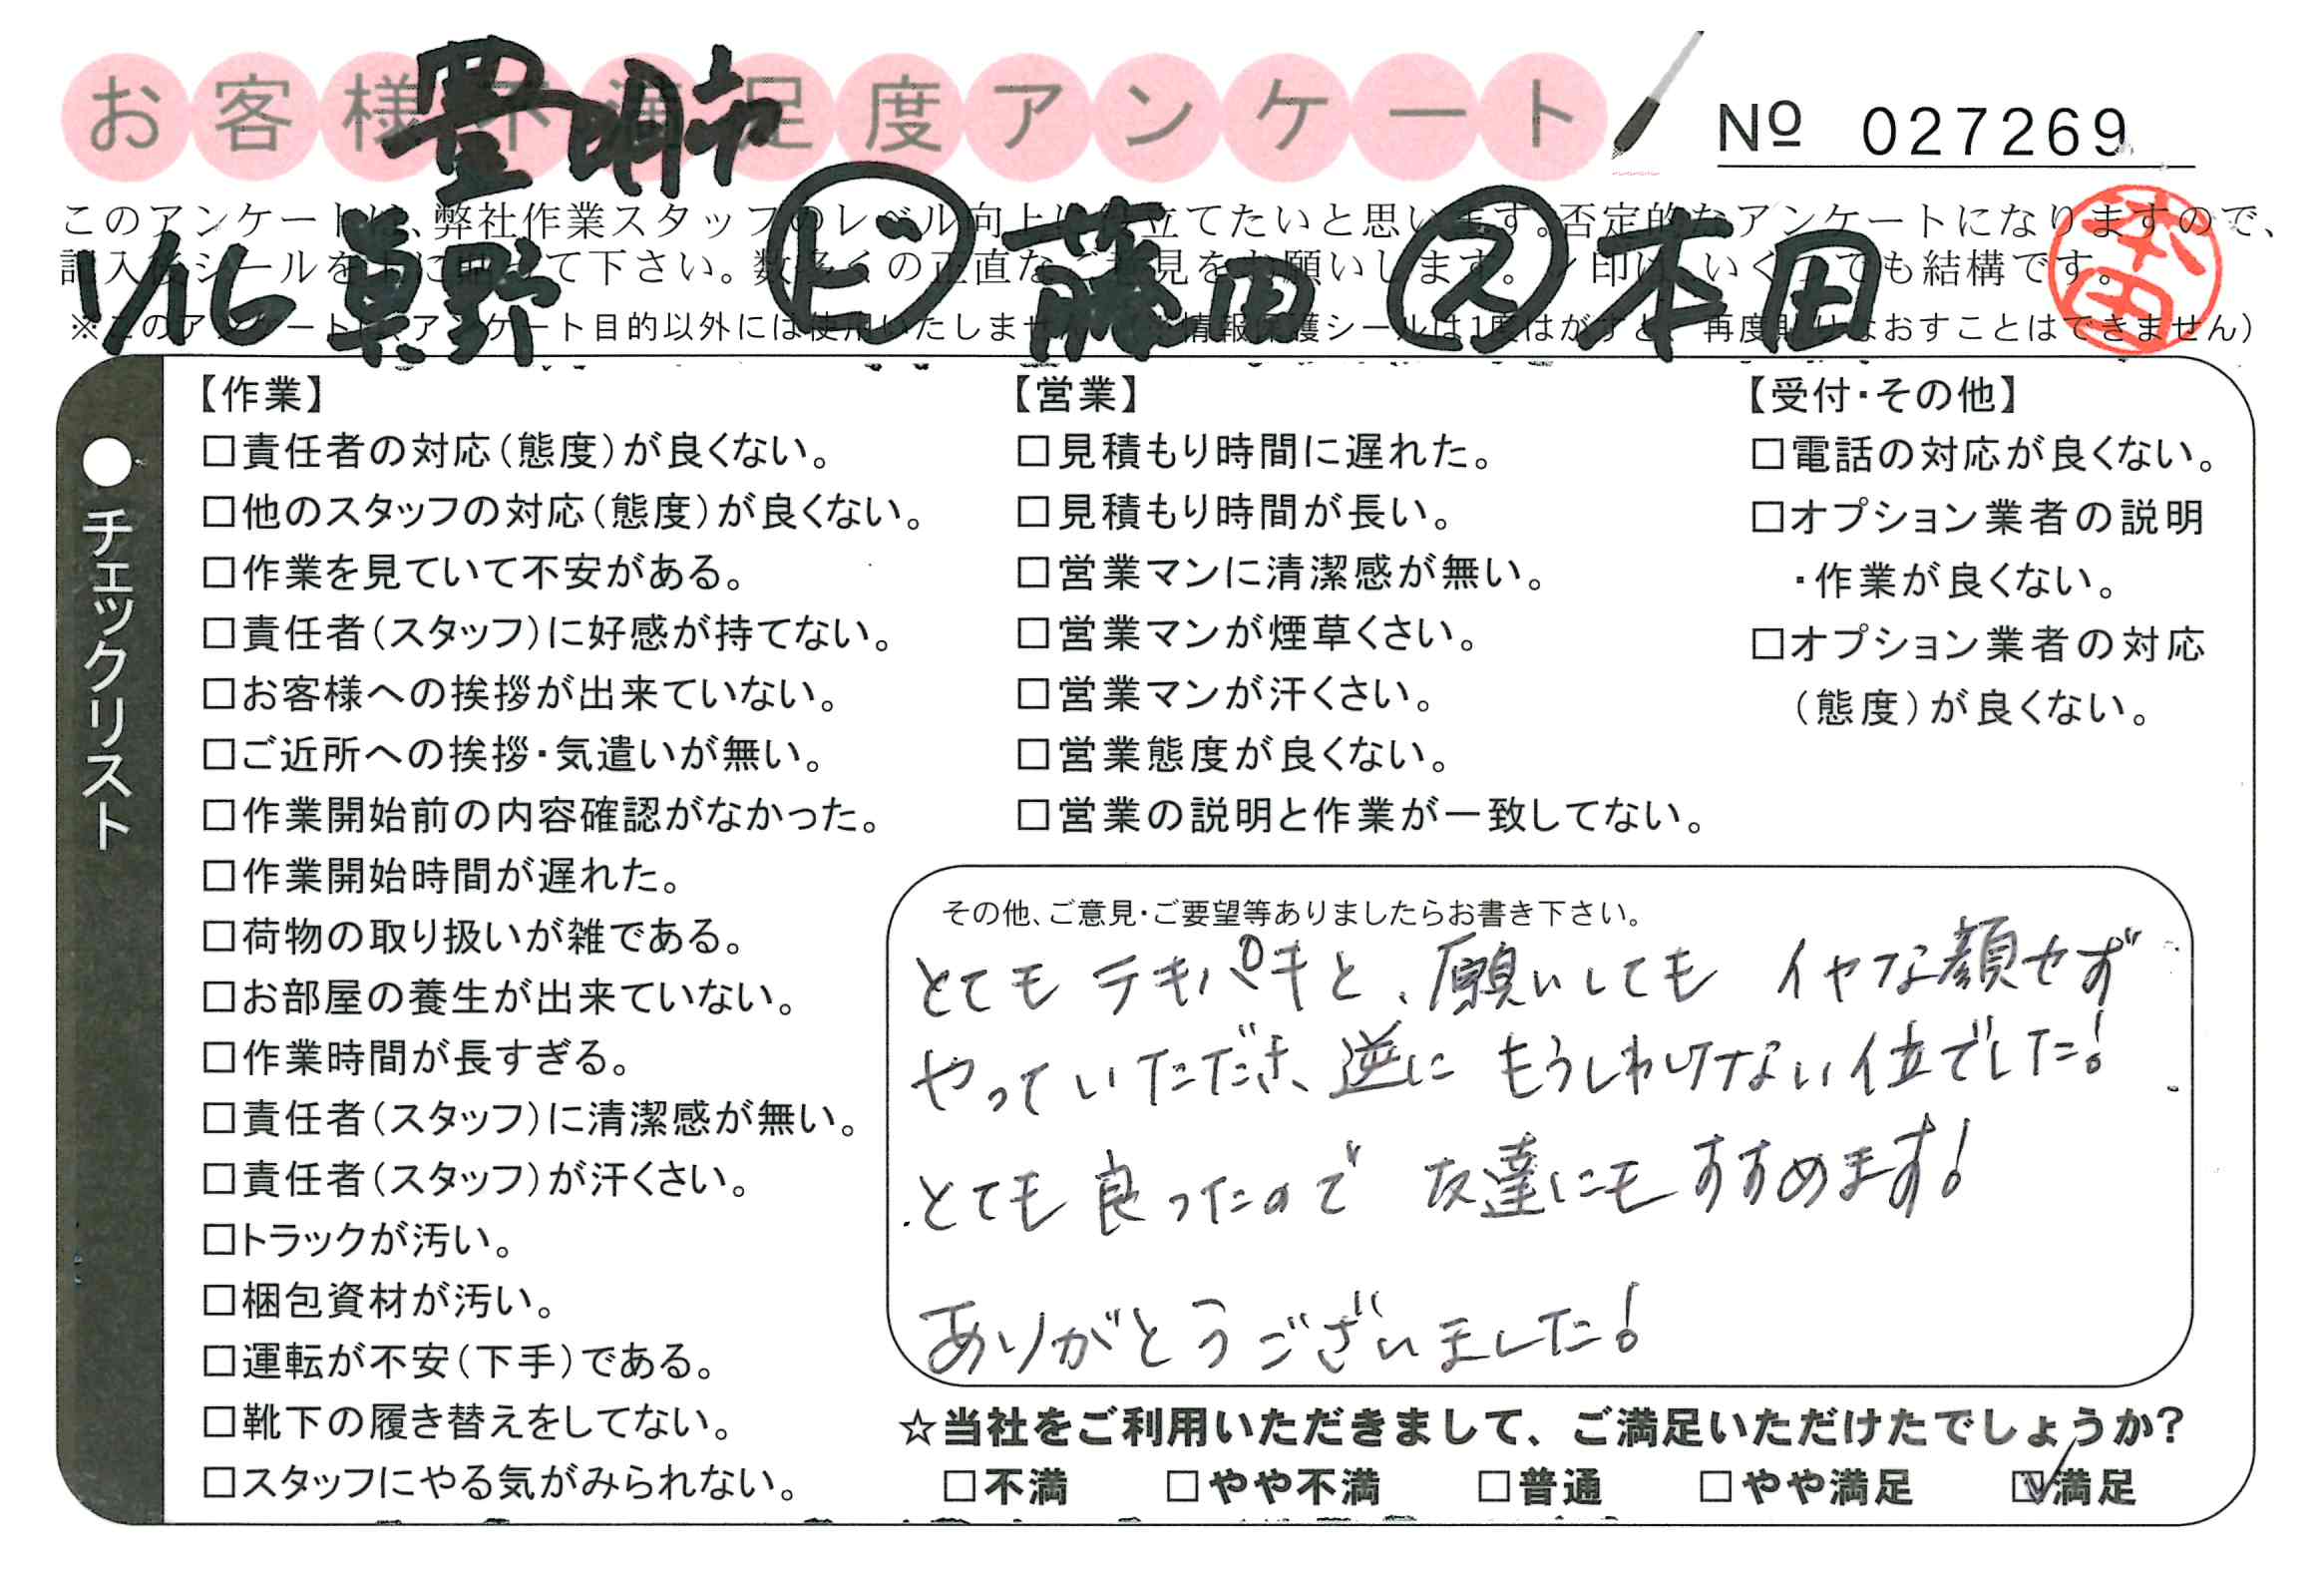 お客様不満足度アンケート
№ 027269
豊明市
このアンケートは、弊社作業スタッフのレベル向上に役立てたいと思います。否定的なアンケートになりますので、
記入後シールを上に配って下さい。数多くの正直なご意見をお願いします。✓印は、いくつでも結構です。
1/16 真野 ㋪ 藤田 ㋜ 本田
本田
【作業】
□責任者の対応(態度)が良くない。
□他のスタッフの対応(態度)が良くない。
□作業を見ていて不安がある。
□責任者(スタッフ)に好感が持てない。
□お客様への挨拶が出来ていない。
□ご近所への挨拶・気遣いが無い。
□作業開始前の内容確認がなかった。
□作業開始時間が遅れた。
□荷物の取り扱いが雑である。
□お部屋の養生が出来ていない。
□作業時間が長すぎる。
□責任者(スタッフ)に清潔感が無い。
□責任者(スタッフ)が汗くさい。
□トラックが汚い。
□梱包資材が汚い。
□運転が不安(下手)である。
□靴下の履き替えをしてない。
□スタッフにやる気がみられない。
【営業】
□見積もり時間に遅れた。
□見積もり時間が長い。
□営業マンに清潔感が無い。
□営業マンが煙草くさい。
□営業マンが汗くさい。
□営業態度が良くない。
□営業の説明と作業が一致してない。
【受付・その他】
□電話の対応が良くない。
□オプション業者の説明
・作業が良くない。
□オプション業者の対応
(態度)が良くない。
●チェックリスト
その他、ご意見・ご要望等ありましたらお書き下さい。
とても テキパキと、願いしても イヤな顔せず
やっていただき、逆に もうしわけない位でした!
とても良ったので 友達にも すすめます!
ありがとうございました!
☆当社をご利用いただきまして、ご満足いただけたでしょうか?
□不満 □やや不満 □普通 □やや満足 ☑満足